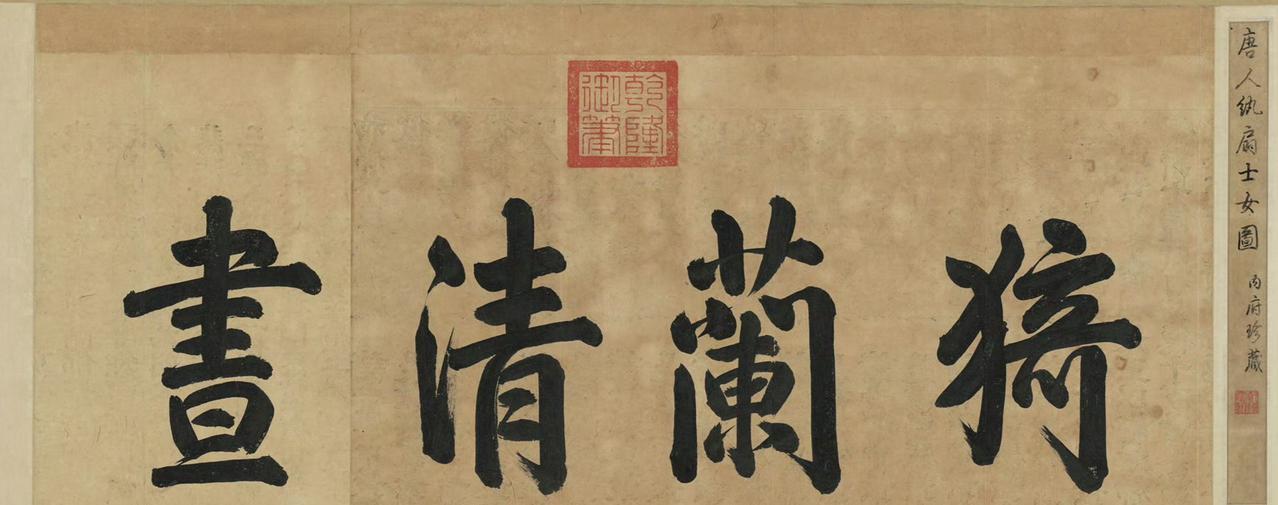 唐人紈扇士女圖 内府珍藏
猗蘭清晝
乾隆
御筆